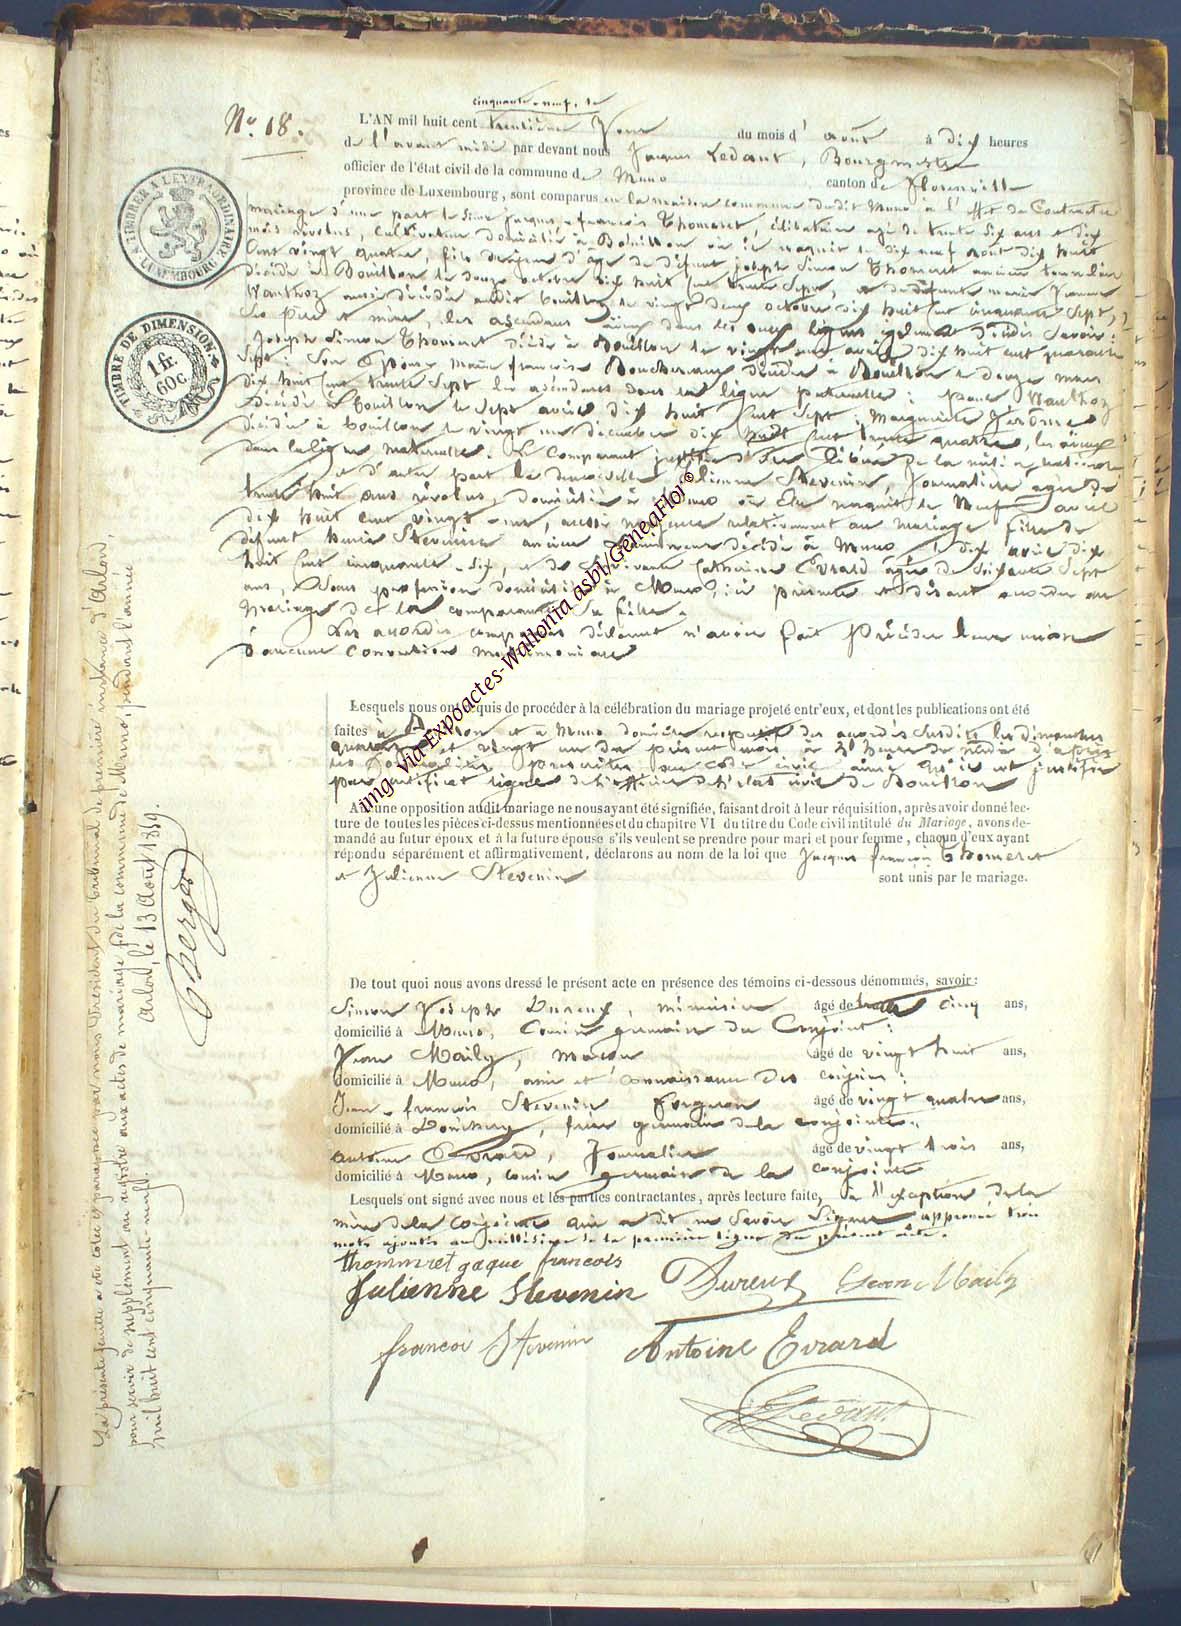 cinquante-neuf, le
No 18.
L'AN mil huit cent trentième Jour du mois d' août à dix heures
de l'avant midi par devant nous Jacques Ledant, Bourgmestre
officier de l'état civil de la commune de Muno canton de Florenville
province de Luxembourg, sont comparus en la maison commune dudit Muno à l'effet de Contracter
mariage d'une part le sieur Jacques-françois Thomeret, célibataire agé de trente six ans et dix
mois révolus, Cultivateur domicilié à Bouillon où il naquit le dix neuf août dix huit
Cent vingt quatre, fils de défunt joseph Simon Thomeret ancien
décédé à Bouillon le douze octobre dix huit cent trente sept, et de défunte marie Jeanne
Wauthoz aussi décédée audit bouillon le vingt deux octobre dix huit cent quarante sept,
ses père et mère, les ascendans aïeux dans les deux lignes également décédés Savoir:
Joseph Simon Thomeret décédé à Bouillon le vingt avril dix huit cent quarante
Sept: Son Epouse marie françoise décédée à Bouillon le douze mars
dix huit cent trente Sept les ascendants dans la ligne paternelle: Wauthoz
décédé à bouillon le Sept avril dix huit Cent Sept: Marguerite Jérôme
décédée à bouillon le vingt un décembre dix huit Cent trente quatre, les aïeux
dans la ligne maternelle. Le Comparant justifie d'être libéré de la milice nationale
et d'autre part la demoiselle Julienne Stevenin, Journalière agée de
trente huit ans révolus, domiciliée à Muno où Elle naquit le Neuf avril
dix huit cent vingt-un, aussi majeure relativement au mariage fille de
défunt Stevenin ancien décédé à Muno le dix avril dix
huit Cent cinquante-six, et de Survivante Catherine Evrard agée de Soixante Sept
ans, Sans profession domiciliée à Muno, ici présente et disant accorder au
mariage de la comparante Sa fille.
Les accordés comparus déclarent n'avoir fait Précéder leur union
d'aucune Convention matrimoniale
Lesquels nous ont requis de procéder à la célébration du mariage projeté entr'eux, et dont les publications ont été
faites à Bouillon et à Muno domicile respectif des accordés Susdits les dimanches
quatorze et vingt un du présent mois à heure de midi d'après
les formalités prescrites par code civil ainsi qu'il est justifié
par certificat signé de l'officier de l'état civil de Bouillon
Aucune opposition audit mariage ne nous ayant été signifiée, faisant droit à leur réquisition, après avoir donné lec-
ture de toutes les pièces ci-dessus mentionnées et du chapitre VI du titre du Code civil intitulé du Mariage, avons de-
mandé au futur époux et à la future épouse s'ils veulent se prendre pour mari et pour femme, chacun d'eux ayant
répondu séparément et affirmativement, déclarons au nom de la loi que Jacques françois Thomeret
et Julienne Stevenin sont unis par le mariage.
De tout quoi nous avons dressé le présent acte en présence des témoins ci-dessous dénommés, savoir:
Simon Joseph Dureux, menuisier âgé de trente cinq ans,
domicilié à Muno, Cousin germain du Conjoint:
Jean Maily, maçon âgé de vingt huit ans,
domicilié à Muno, ami et connaissance des conjoins:
Jean-françois Stevenin Forgeron âgé de vingt quatre ans,
domicilié à Donchery, frère germain de la conjointe..
antoine Evrard, Journalier âgé de vingt trois ans,
domicilié à Muno, cousin germain de la conjointe
Lesquels ont signé avec nous et les parties contractantes, après lecture faite, à l'exception de la
mère de la conjointe qui a dit ne Savoir Signer approuvé trois
mots ajoutés au millésime de la première ligne du présent acte.
thommeret gaque francois
Julienne Stevenin Dureux Jean Maily
francoi Stevenin Antoine Evrard
J Ledant
TIMBRER A L'EXTRAORDINAIRE
LUXEMBOURG
TIMBRE DE DIMENSION.
1 fr.
60 c.
La présente feuille a été cotée et paraphée par nous Président du tribunal de première instance d'Arlon,
pour servir de supplément au registre aux actes de mariage de la commune de Muno, pendant l'année
mil huit cent cinquante-neuf.
Arlon, le 13 Août 1859.
img. via Expoactes-Wallonia asbl/GeneaFlor ©